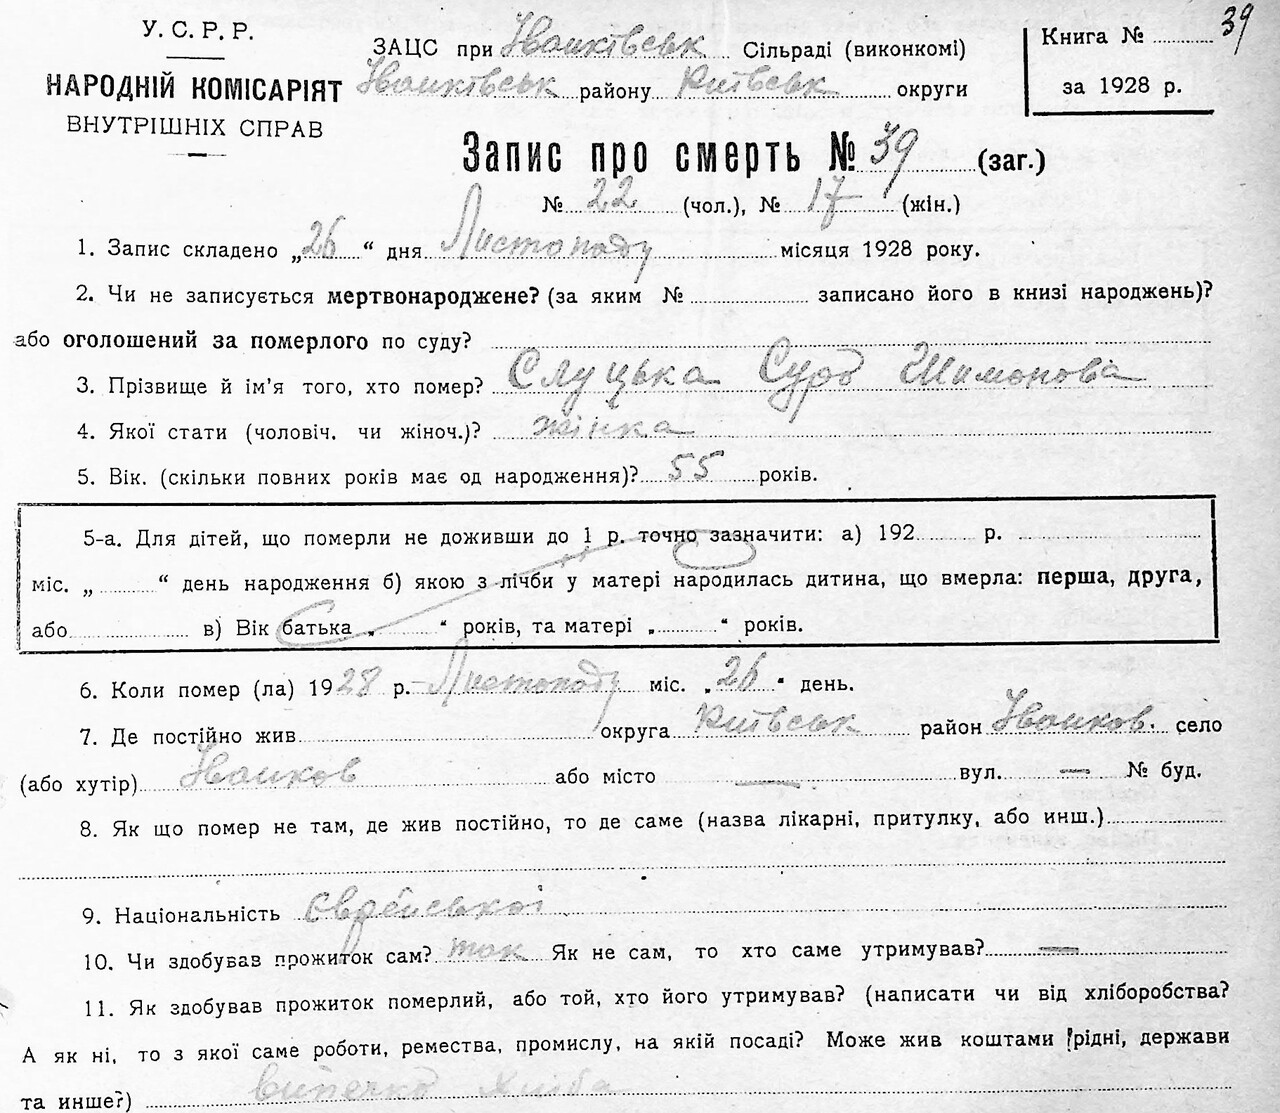 39
У. С. Р. Р.
НАРОДНІЙ КОМІСАРІЯТ
ВНУТРІШНІХ СПРАВ
ЗАЦС при Іванківськ Сільраді (виконкомі)
Іванківськ району Київськ округи
Книга №
за 1928 р.
Запис про смерть № 39 (заг.)
№ 22 (чол.), № 17 (жін.)
1. Запис складено „26“ дня Листопаду місяця 1928 року.
2. Чи не записується мертвонароджене? (за яким № записано його в книзі народжень)?
або оголошений за померлого по суду?
3. Прізвище й ім’я того, хто помер? Слуцька Шимонова
4. Якої стати (чоловіч. чи жіноч.)? жінка
5. Вік. (скільки повних років має од народження)? 55 років.
5-а. Для дітей, що померли не доживши до 1 р. точно зазначити: а) 192 р.
міс. „ “ день народження б) якою з лічби у матері народилась дитина, що вмерла: перша, друга,
або в) Вік батька „ “ років, та матері „ “ років.
6. Коли помер (ла) 1928 р. Листопаду міс. „26“ день.
7. Де постійно жив округа Київськ район Іванков. село
(або хутір) Іванков або місто — вул. — № буд.
8. Як що помер не там, де жив постійно, то де саме (назва лікарні, притулку, або инш.)
9. Національність Єврейської
10. Чи здобував прожиток сам? так Як не сам, то хто саме утримував? —
11. Як здобував прожиток померлий, або той, хто його утримував? (написати чи від хліборобства?
А як ні, то з якої саме роботи, ремества, промислу, на якій посаді? Може жив коштами рідні, держави
та инше?) хліба